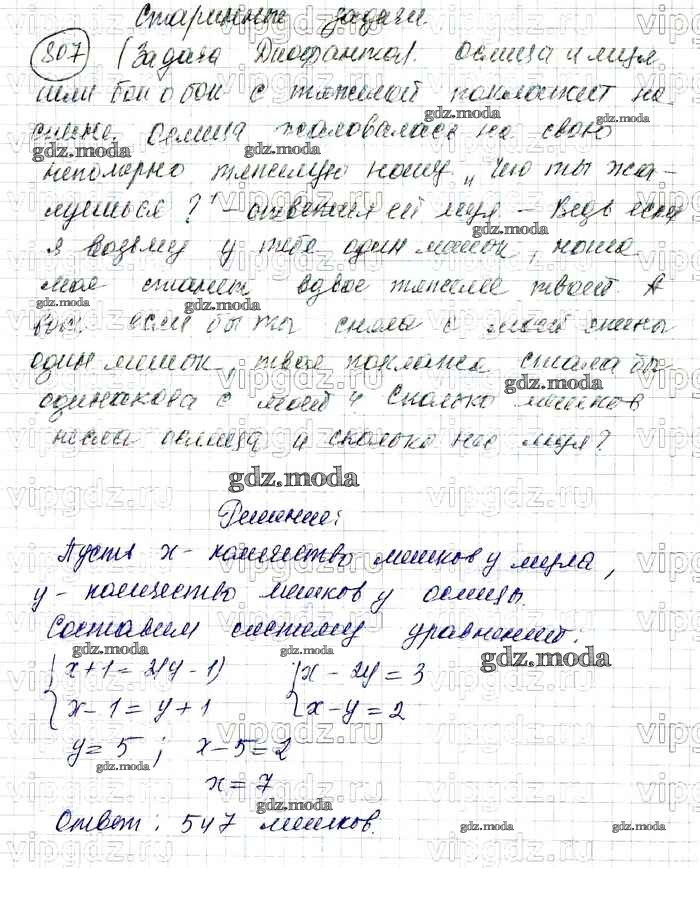 Старинные задачи.
807 (Задача Диофанта). Ослица и мул
шли бок о бок с тяжелой поклажей на
спине. Ослица жаловалась на свою
непомерно тяжелую ношу. „Что ты жа-
луешься?" – ответил ей мул – Ведь если
я возьму у тебя один мешок, ноша
моя станет вдвое тяжелее твоей. А
вот если бы ты сняла с моей спины
один мешок, твоя поклажа стала бы
одинакова с моей". Сколько мешков
несла ослица и сколько нёс мул?
Решение:
Пусть x – количество мешков у мула,
y – количество мешков у ослицы.
Составим систему уравнений:
{ x + 1 = 2(y - 1) { x - 2y = 3
{ x - 1 = y + 1 { x - y = 2
y = 5 ; x - 5 = 2
x = 7
Ответ: 5 и 7 мешков.
gdz.moda
vipgdz.ru